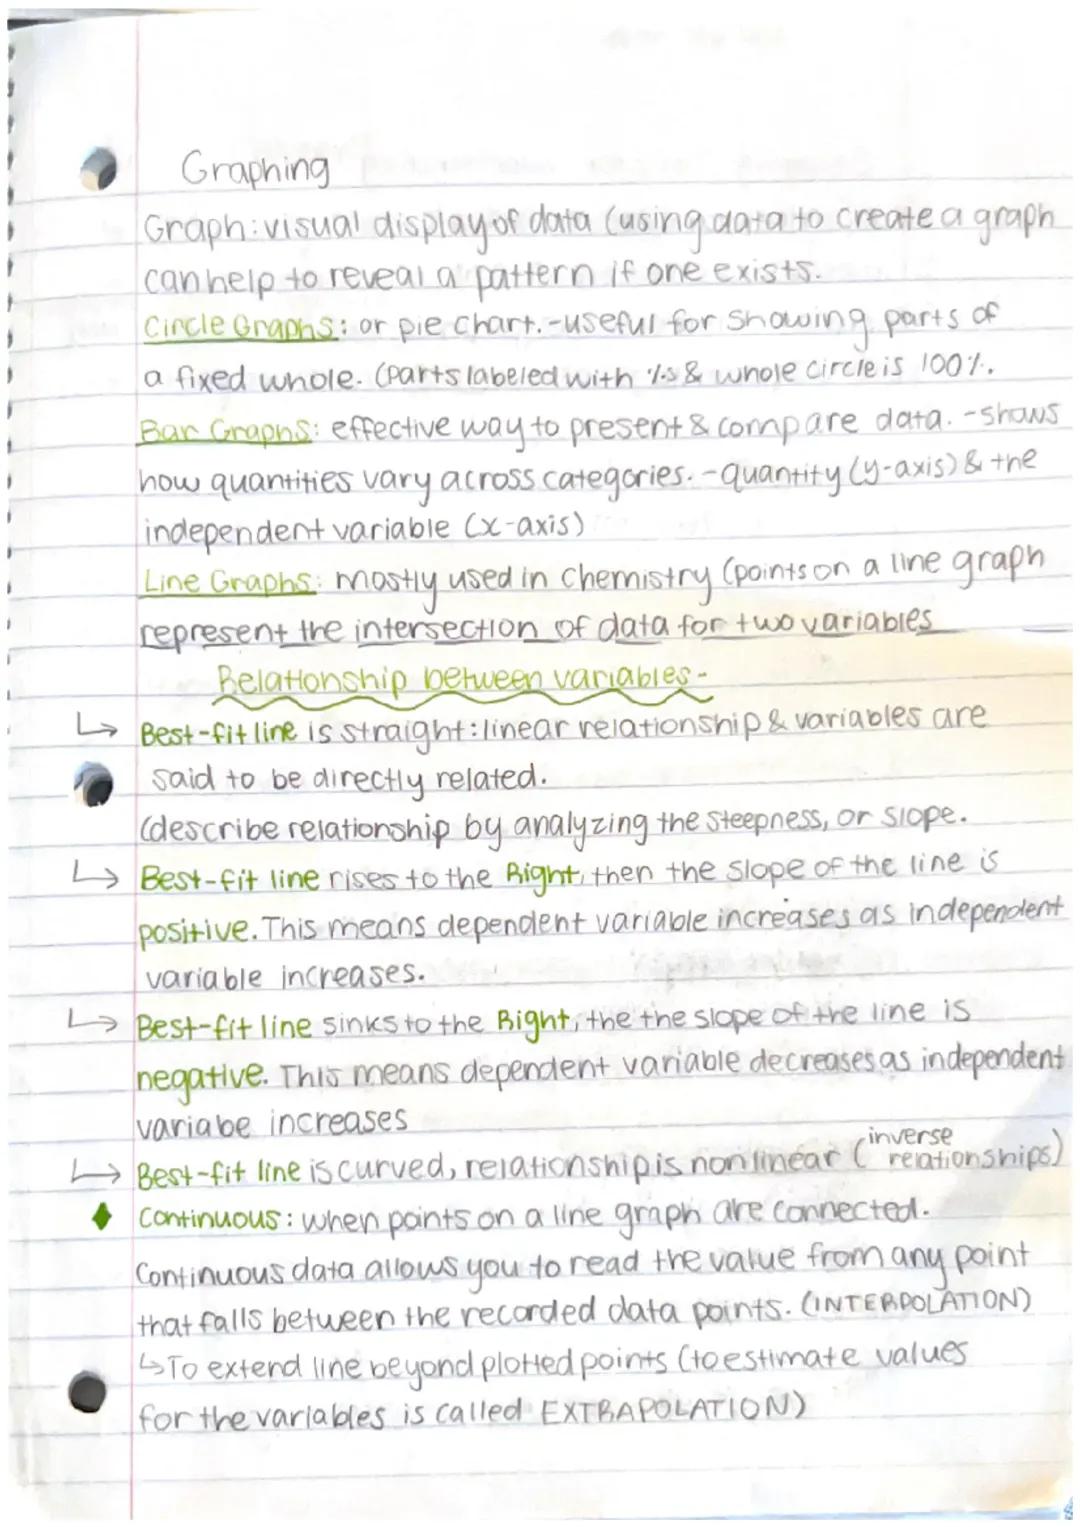 Graphing
Graph: visual display of data (using data to create a graph
can help to reveal a pattern if one exists.
Circle Graphs: or pie chart. -useful for showing parts of
a fixed whole. (parts labeled with %s & whole circle is 100%.
Bar Graphs: effective way to present & compare data. -shows
how quantities vary across categories. -quantity (y-axis) & the
independent variable (x-axis)
Line Graphs: mostly used in chemistry (points on a line graph
represent the intersection of data for two variables
Relationship between variables-
↳ Best-fit line is straight: linear relationship & variables are
said to be directly related.
(describe relationship by analyzing the steepness, or slope.
↳ Best-fit line rises to the Right, then the slope of the line is
positive. This means dependent variable increases as independent
variable increases.
↳ Best-fit line sinks to the Right, the the slope of the line is
negative. This means dependent variable decreases as independent
variabe increases
↳ Best-fit line is curved, relationship is nonlinear (inverse relationships)
♦ Continuous: when points on a line graph are connected.
Continuous data allows you to read the value from any point
that falls between the recorded data points. (INTERPOLATION)
↳ To extend line beyond plotted points (to estimate values
for the variables is called EXTRAPOLATION)